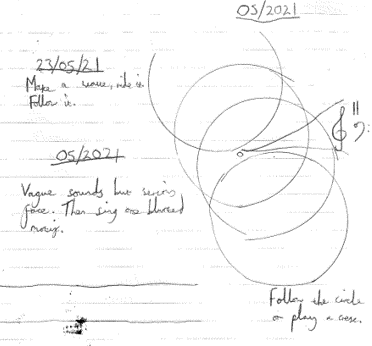 05/2021
23/05/21
Make a wave, ride it.
Follow it.
05/2021
Vague sounds but serious
face. Then sing one blurred
Follow the circle
or play a